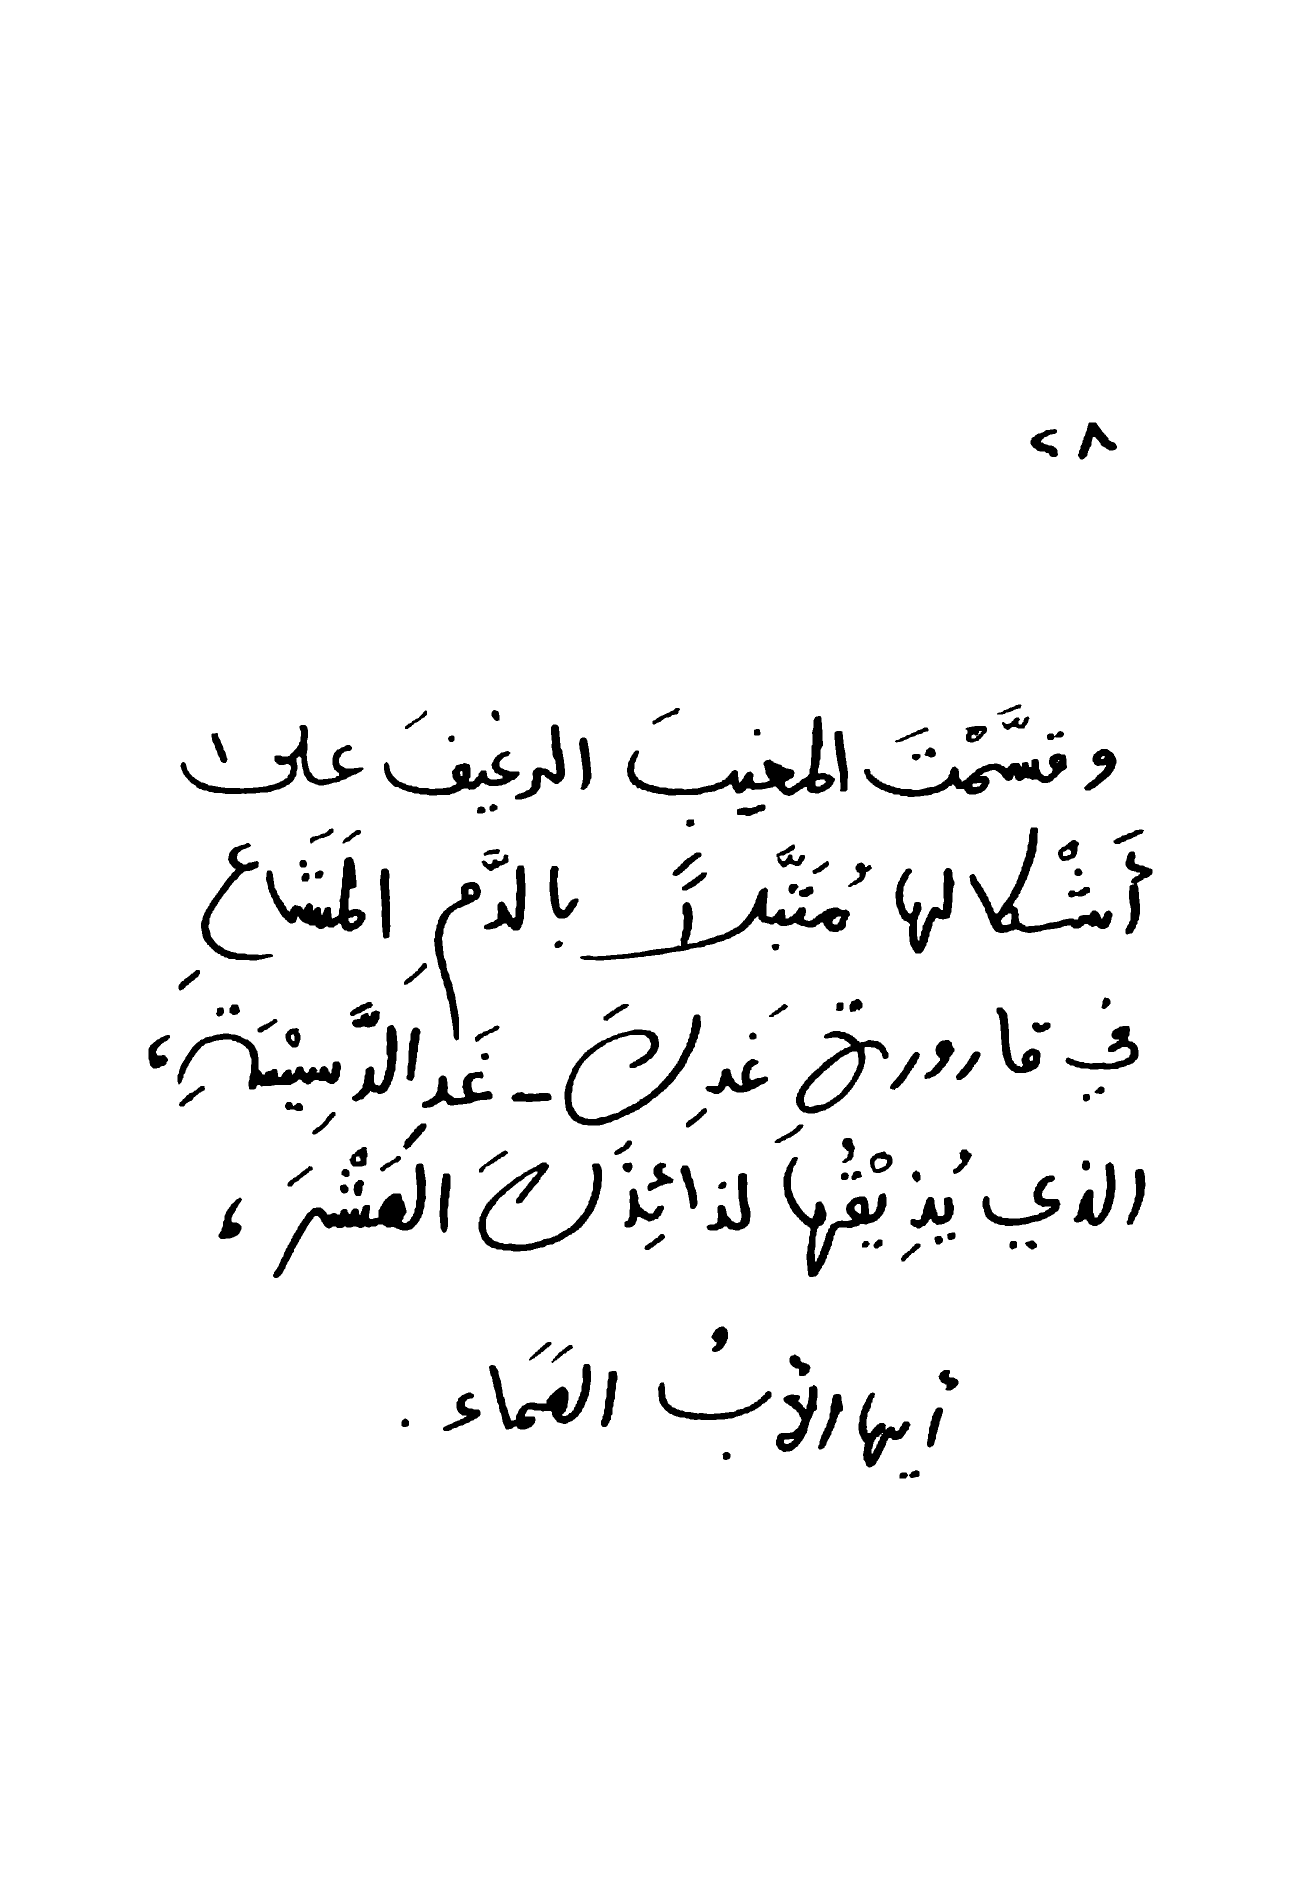 ٢٨
وقَسَّمْتَ المغيبَ الرغيفَ على
أَشْكالها مُتَبَّلاً بالدَّمِ المَشَاعِ
في قارورةِ غَدِكَ ـ غَدِ الدَّسِيْسَةِ،
الذي يُذِيْقُها لذائِذَكَ العَشْرَ،
أيها الأبُ الصَمَاء.